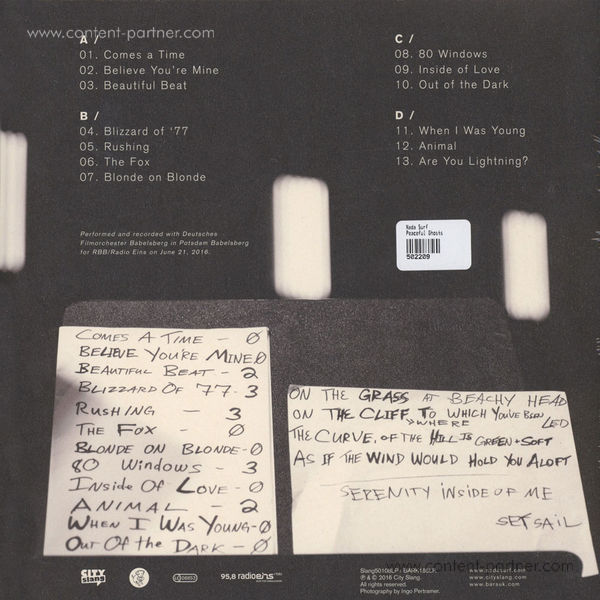 www.content-partner.com
A /
01. Comes a Time
02. Believe You're Mine
03. Beautiful Beat
B /
04. Blizzard of '77
05. Rushing
06. The Fox
07. Blonde on Blonde
C /
08. 80 Windows
09. Inside of Love
10. Out of the Dark
D /
11. When I Was Young
12. Animal
13. Are You Lightning?
Performed and recorded with Deutsches
Filmorchester Babelsberg in Potsdam Babelsberg
for RBB/Radio Eins on June 21, 2016.
Nada Surf
Peaceful Ghosts
502209
COMES A TIME - 0
BELIEVE YOU'RE MINE 0
BEAUTIFUL BEAT - 2
BLIZZARD OF '77 - 3
RUSHING - 3
THE FOX - 0
BLONDE ON BLONDE - 0
80 WINDOWS - 3
INSIDE OF LOVE - 0
ANIMAL - 2
WHEN I WAS YOUNG - 0
OUT OF THE DARK - 0
ON THE GRASS AT BEACHY HEAD
ON THE CLIFF TO WHICH YOU'VE BEEN LED
WHERE
THE CURVE, OF THE HILL IS GREEN + SOFT
AS IF THE WIND WOULD HOLD YOU ALOFT
SERENITY INSIDE OF ME
SET SAIL
CITY slang
LC 06853
95,8 radioeins
℗ & © 2016 City Slang.
All rights reserved.
Photography by Ingo Pertramer.
www.cityslang.com
www.barsuk.com
www.content-partner.com